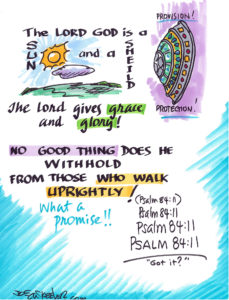 The LORD GOD is a
SUN
and a
SHEILD
PROVISION!
PROTECTION!
The Lord gives grace
and glory!
NO GOOD THING DOES HE
WITHHOLD
FROM THOSE WHO WALK
UPRIGHTLY!
What a
promise!!
(Psalm 84:11)
Psalm 84:11
Psalm 84:11
PSALM 84:11
"Got it?"